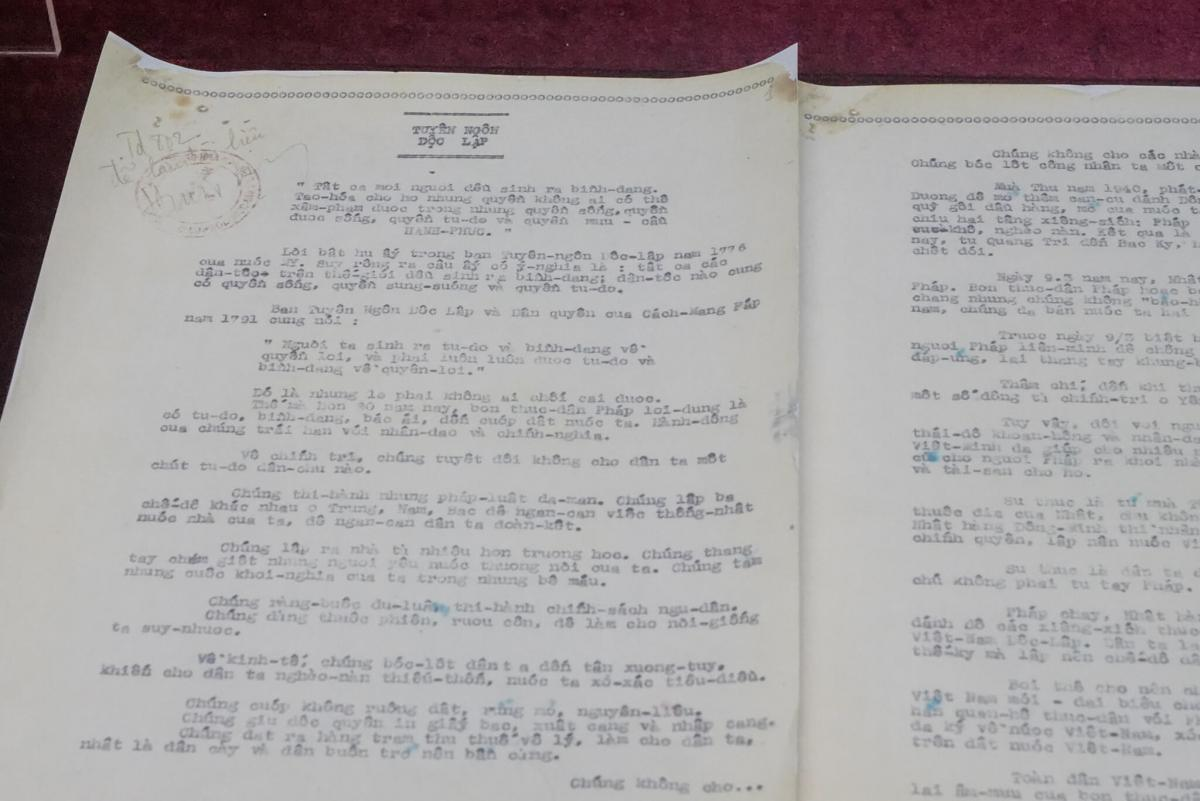 TUYÊN NGÔN
DỘC LẬP
" Tất ca moi nguoi đều sinh ra bình-dang.
Tao-hóa cho ho nhung quyền không ai có thể
xâm-pham duoc trong nhung quyền sống, quyền
duoc sống, quyền tu-do và quyền muu - cầu
HANH-PHUC. "
Lời bất hu ấy trong ban Tuyên-ngôn Dôc-lâp nam 1776
cua nuóc Mỹ. Suy rông ra câu ấy có ý-nghia là : tất ca các
dân-tôc trên thế-giói dêu sinh ra binh-dang; dân-tôc nào cung
có quyền sống, quyền sung-suóng và quyền tu-do.
Ban Tuyên Ngôn Dôc Lâp và Dân quyền cua Cách-Mang Pháp
nam 1791 cung nói :
" Nguời ta sinh ra tu-do và bình-dang về
quyền loi, và phai luôn luôn duoc tu-do và
bình-dang về quyền-loi."
Dó là nhung le phai không ai chối cai duoc.
Thế mà hon 80 nam nay, bon thuc-dân Pháp loi-dung lá
có tu-do, bình-dang, bác ái, dến cuóp dất nuóc ta. Hành-dông
cua chúng trái han vói nhân-dao và chính-nghia.
Về chính trị, chúng tuyêt dối không cho dân ta môt
chút tu-do dân-chu nào.
Chúng thi-hành nhung pháp-luât da-man. Chúng lâp ba
chế-dô khác nhau o Trung, Nam, Bac dê ngan-can viêc thống-nhất
nuóc nhà cua ta, dê ngan-can dân ta doàn-kết.
Chúng lâp ra nhà tù nhiều hon truong hoc. Chúng thang
tay chém giết nhung nguoi yêu nuóc thuong nòi cua ta. Chúng tắm
nhung cuôc khoi-nghia cua ta trong nhung bể máu.
Chúng ràng-buôc du-luân, thi-hành chính-sách ngu-dân.
Chúng dùng thuốc phiên, ruou cồn, dê làm cho nòi-giống
ta suy-nhuoc.
Về kinh-tế, chúng bóc-lôt dân ta dến tân xuong-tuy,
khiến cho dân ta nghèo-nàn thiếu-thốn, nuóc ta xo-xác tiêu-diều.
Chúng cuóp không ruông dất, rừng mỏ, nguyên-liêu.
Chúng giu dôc quyền in giấy bac, xuất cang và nhâp cang.
Chúng dat ra hàng tram thu thuế vô lý, làm cho dân ta,
nhất là dân cày và dân buôn tro nên bần cùng.
Chúng không cho...
Chúng không cho các nhà
Chúng bóc lôt công nhân ta môt c
Mùa Thu nam 1940, phát
Duong dê mo thêm can-cu dánh Dồn
quỳ gối dầu hàng, mo cua nuóc t
chiu hai tầng xiềng-xích: Pháp
cuc-khô, nghèo nàn. Kết qua là
nay, tu Quang Tri dến Bac Kỳ,
chết dói.
Ngày 9.3 nam nay, Nhât
Pháp. Bon thuc-dân Pháp hoac b
chang nhung chúng không "bao-h
nam, chúng da bán nuóc ta hai
Truoc ngày 9/3 biết b
nguoi Pháp liên-minh dê chống
dáp-ung, lai thang tay khung-b
Thâm chí, dến khi th
môt số dông tù chính-tri o Yên
Tuy vây, dối vói ngu
thái-dô khoan-hồng và nhân-da
Viêt-minh da giúp cho nhiều
cúu cho nguoi Pháp ra khoi nhà
và tài-san cho ho.
Su thuc là từ mùa
thuôc dia cua Nhât, chu khôn
Nhât hàng Dồng-minh thì nhân
chính quyền, lâp nên nuóc Vi
Su thuc là dân ta d
chú không phai tu tay Pháp.
Pháp chay, Nhât hàn
dánh dô các xiềng-xích thuc
Viêt-Nam Dôc-Lâp. Dân ta la
thế-ky mà lâp nên chế-dô dâ
Boi thế cho nên
Viêt Nam mói - dai biêu ch
hăn quan-hê thuc-dân vói P
da ký về nuoc Viêt-Nam, xó
trên dất nuóc Viêt-Nam.
Toàn dân Viêt-Nam
lai âm-muu cua bon thuc-d